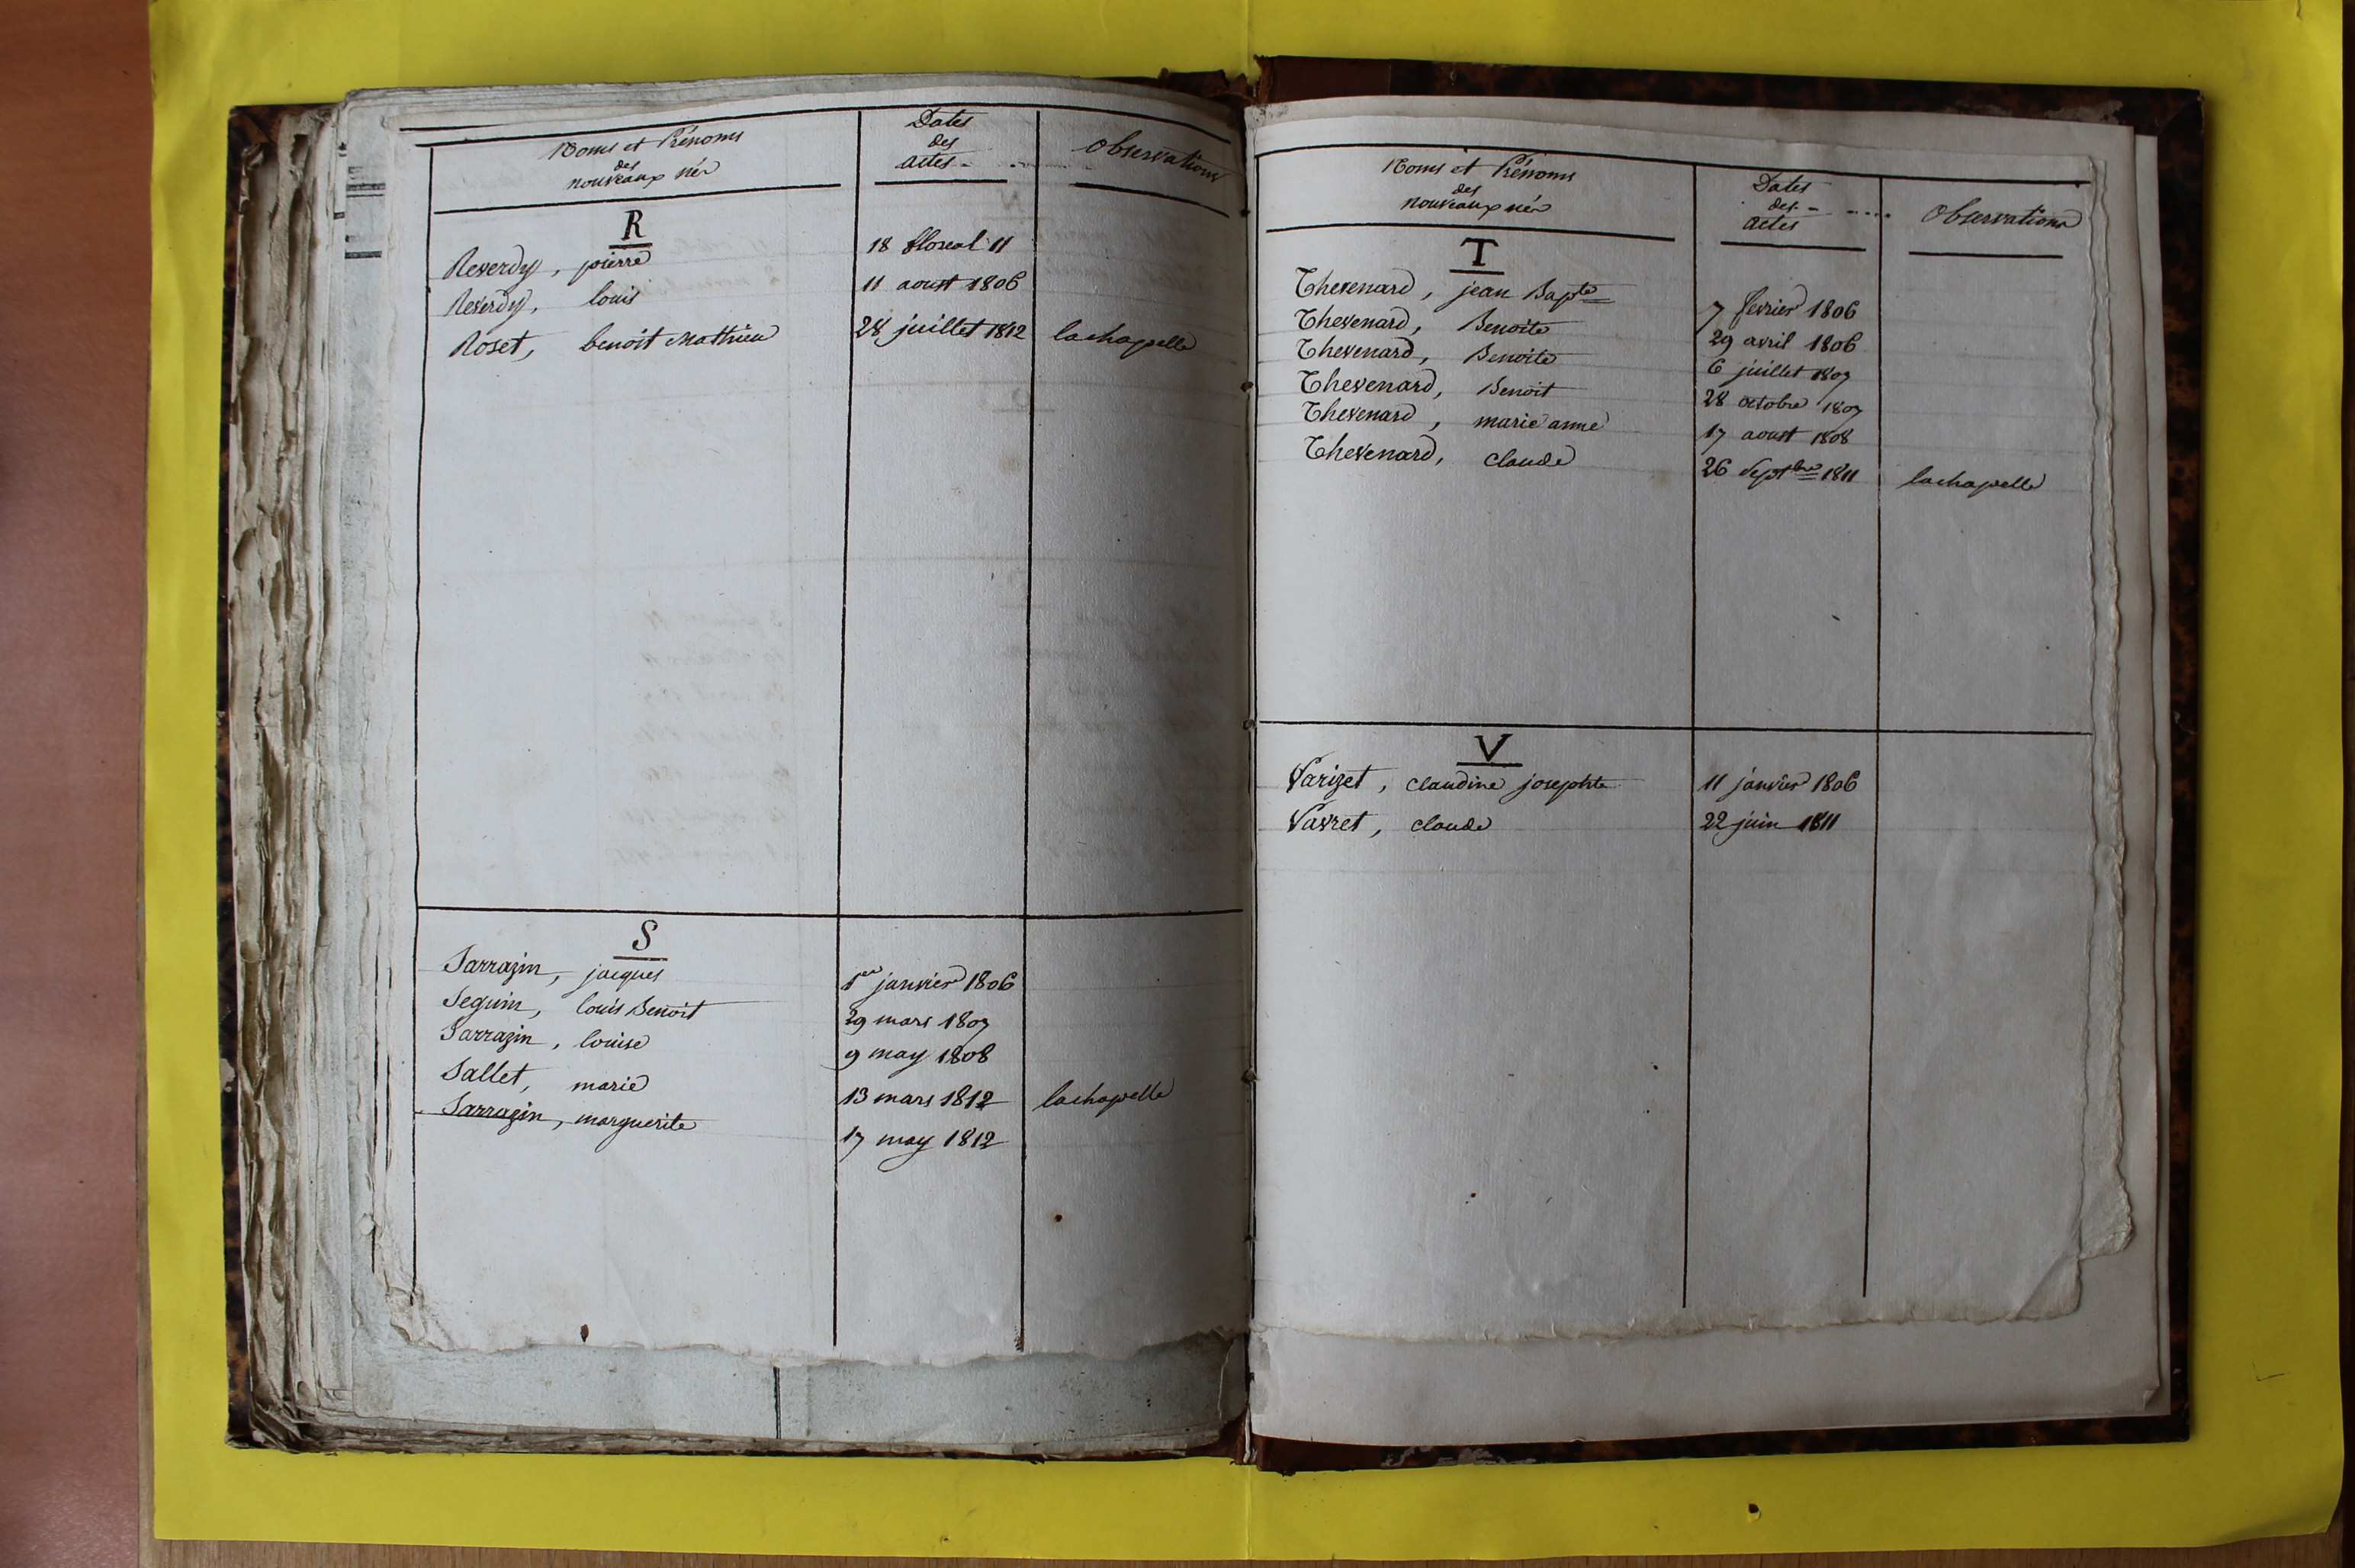 Noms et Prénoms
des
nouveaux nés
Dates
des
actes
Observations
R
Reverdy, pierre 18 floreal 11
Reverdy, louis 11 aoust 1806
Roset, benoit Mathieu 28 juillet 1812 lachapelle
S
Sarrazin, jacques 1er janvier 1806
Seguin, louis Benoit 29 mars 1807
Sarrazin, louise 9 may 1808
Sallet, marie 13 mars 1812 lachapelle
Sarrazin, marguerite 17 may 1812
Noms et Prénoms
des
nouveaux nés
Dates
des
actes
Observations
T
Thevenard, jean Bapte 7 fevrier 1806
Thevenard, Benoite 29 avril 1806
Thevenard, Benoite 6 juillet 1807
Thevenard, Benoit 28 octobre 1807
Thevenard, marie anne 17 aoust 1808
Thevenard, claude 26 Septbre 1811 lachapelle
V
Varizet, claudine josephte 11 janvier 1806
Vavret, claude 22 juin 1811